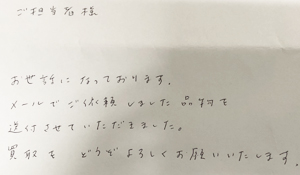 ご担当者様
お世話になっております。
メールでご依頼しました品物を
送付させていただきました。
買取を どうぞよろしくお願いいたします。